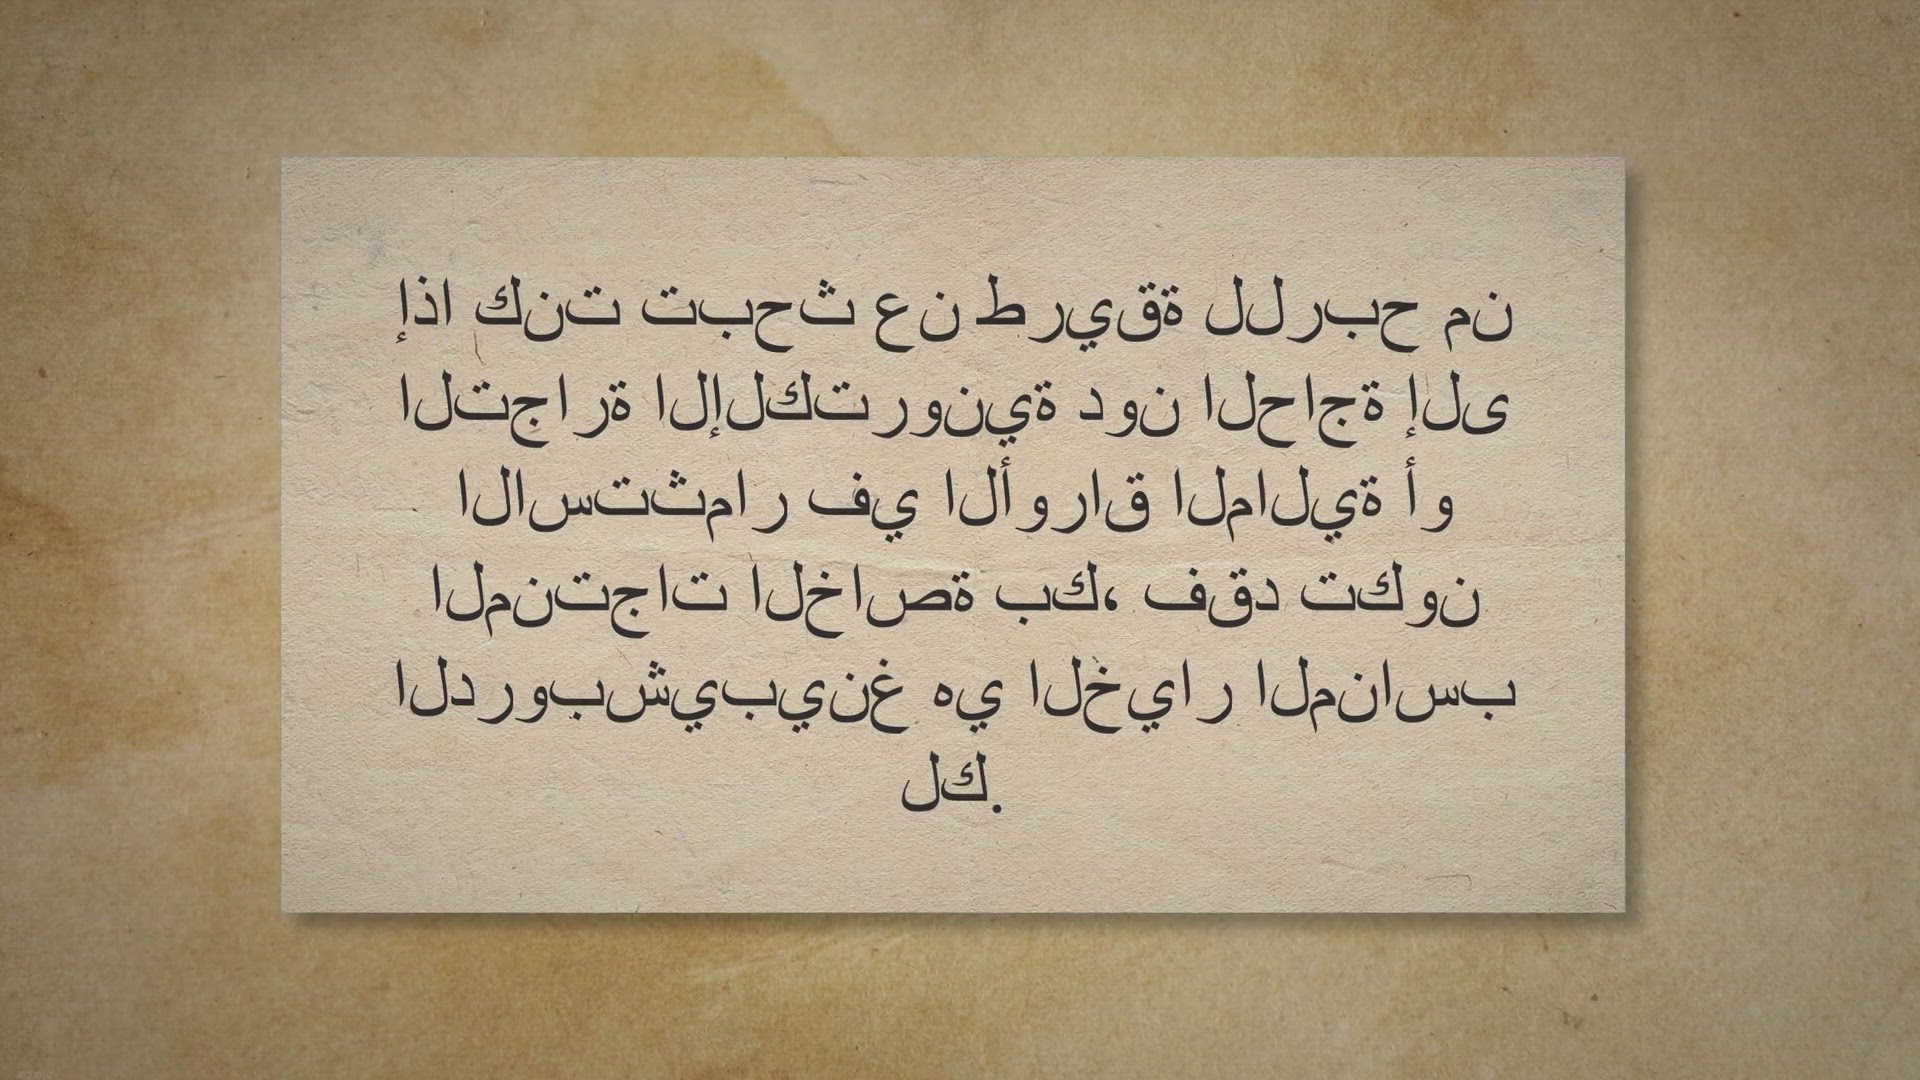 إذا كنت تبحث عن طريقة للربح من
التجارة الإلكترونية دون الحاجة إلى
الاستثمار في الأوراق المالية أو
المنتجات الخاصة بك، فقد تكون
الدروبشيبينغ هي الخيار المناسب
لك.